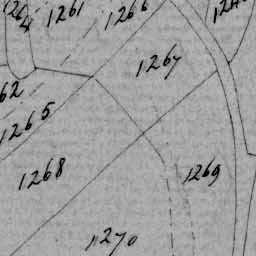 1261
1266
1267
1265
1268
1269
1270